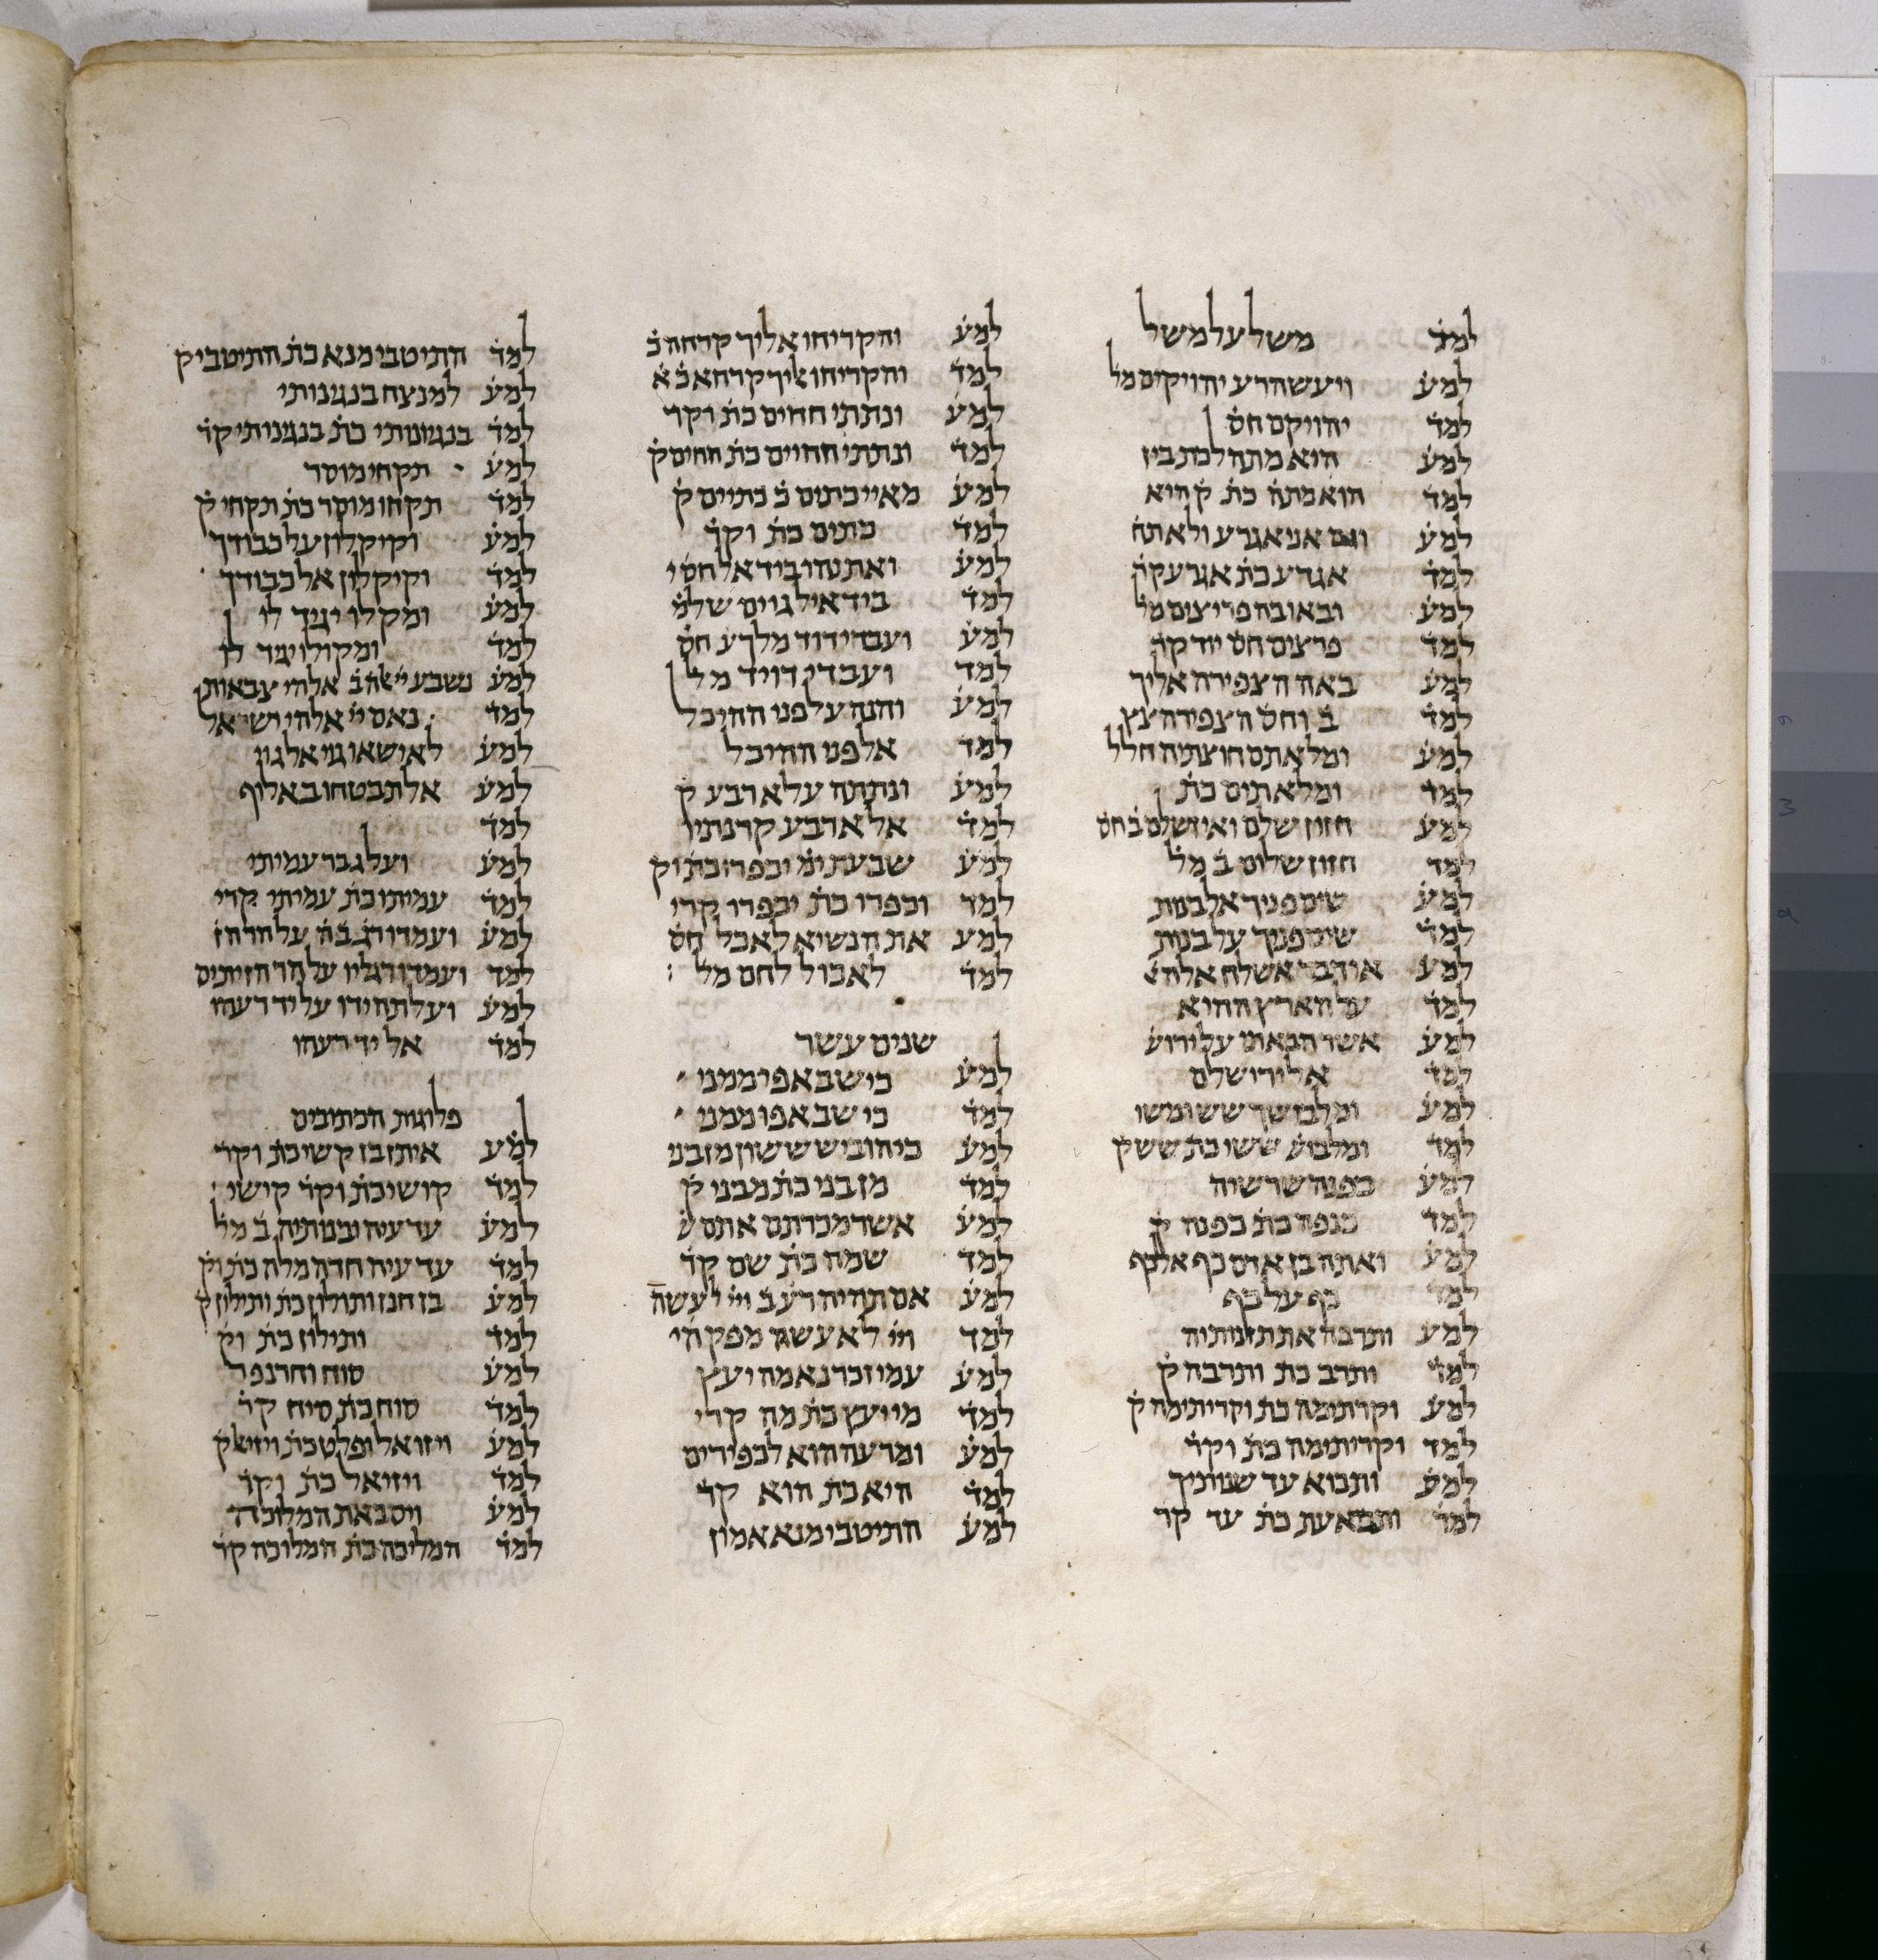 למד משל על משל
למע ויעש הרע יהויקים מל
למד יהויקם חס
למע הוא מתהלכת בין
למד הוא כתה כת קהיא
למע וגם אני אגרע ולא תח
למד אגדע כת אגרע קר
למע ובאו בה פריצים מל
למד פרצים חס יוד קר
למע באה הצפירה אליך
למד ב וחס הצפירה צץ
למע ומלאתם חוצתיה חלל
למד ומלאתים כת
למע חזון שלם ואין שלם ב חס
למד חזון שלום ב מל
למע שים פניך אל בנות
למד שים פניך על בנות
למע או דבר אשלח אל ה
למד על הארץ ההיא
למע אשר הבאתי על ירוש
למד אל ירושלם
למע ומלבושך ששי ומשי
למד ומלבוש ששי כת שש ק
למע כפנה שרשיה
למד כנפה כת כפנה ק
למע ואתה בן אדם כף אל כף
למד כף על כף
למע ותרבה את תזנותיה
למד ותרב כת ותרבה ק
למע וקרתימה כת וקריתימה ק
למד וקריתימה כת וקר
למע ותבוא עד שנותיך
למד ותבוא עת כת עד קר
למע והקריחו אליך קרחה ב
למד והקריחו אליך קרחא ב א
למע ונתתי חחים כת וקר
למד ונתתי חחיים כת חחים ק
למע מאיי כתים ב כתיים ק
למד כתים כת וקר
למע ואתנהו ביד אל חס י
למד ביד איל גוים שלמ
למע ועבדי דוד מלך ע חס
למד ועבדי דויד מל
למע והנה על פני ההיכל
למד אל פני ההיכל
למע ונתתה על ארבע ק
למד אל ארבע קרנתיו
למע שבעת ימי יכפרו כת וק
למד וכפרו כת יכפרו קרי
למע את הנשיא לאכל חס
למד לאכול לחם מל :
שנים עשר
למע כי שב אפי ממני
למד כי שב אפו ממני
למע כי הוביש ששון מן בני
למד מן בני כת מבני ק
למע אשר מכרתם אתם ש
למד שמה כת שם קר
למע אם תהיה רעב ויי לעשה
למד ויי לא עשה מפק הי
למע עמי זכר נא מה יעץ
למד מי יעץ כת מה קרי
למע ומרעה הוא לכפירים
למד היא כת הוא קר
למע התיטבי מנא אמון
למד התיטבי מנא כת התיטבי ק
למע למנצח בנגינותי
למד בנגינותי כת בנגינותי קר
למע תקחי מוסר
למד תקחו מוסר כת תקחי ק
למע וקיקלון על כבודך
למד וקיקלון אל כבודך
למע ומקלו יגיד לו
למד ומקולו יגיד לו
למע נשבע יי אלהי צבאות
למד נאם יי אלהי ישראל
למע לא ישאו גוי אל גוי
למע אל תבטחו באליף
למד
למע ועל גבר עמיתי
למד עמיתו כת עמיתי קרי
למע ועמדו רג בה על הר הז
למד ועמדו רגליו על הר הזיתים
למע ועלתה ידו על יד רעהו
למד אל יד רעהו
פלוגות הכתובים
למע איתן בן קשי כת וקר
למד קושי כת וקר קישי :
למע עד עיה ובנותיה ב מל
למד עד עיה חדה מלה כת וק
למע בן חנן ותולון כת ותילון ק
למד ותילון כת וק
למע סוח וחרנפר
למד סוח כת סיח קר
למע ויזואל ופלט כת ויזיאל ק
למד ויזיאל כת וקר
למע ויסב את המלוכה
למד המליכה כת המלוכה קר